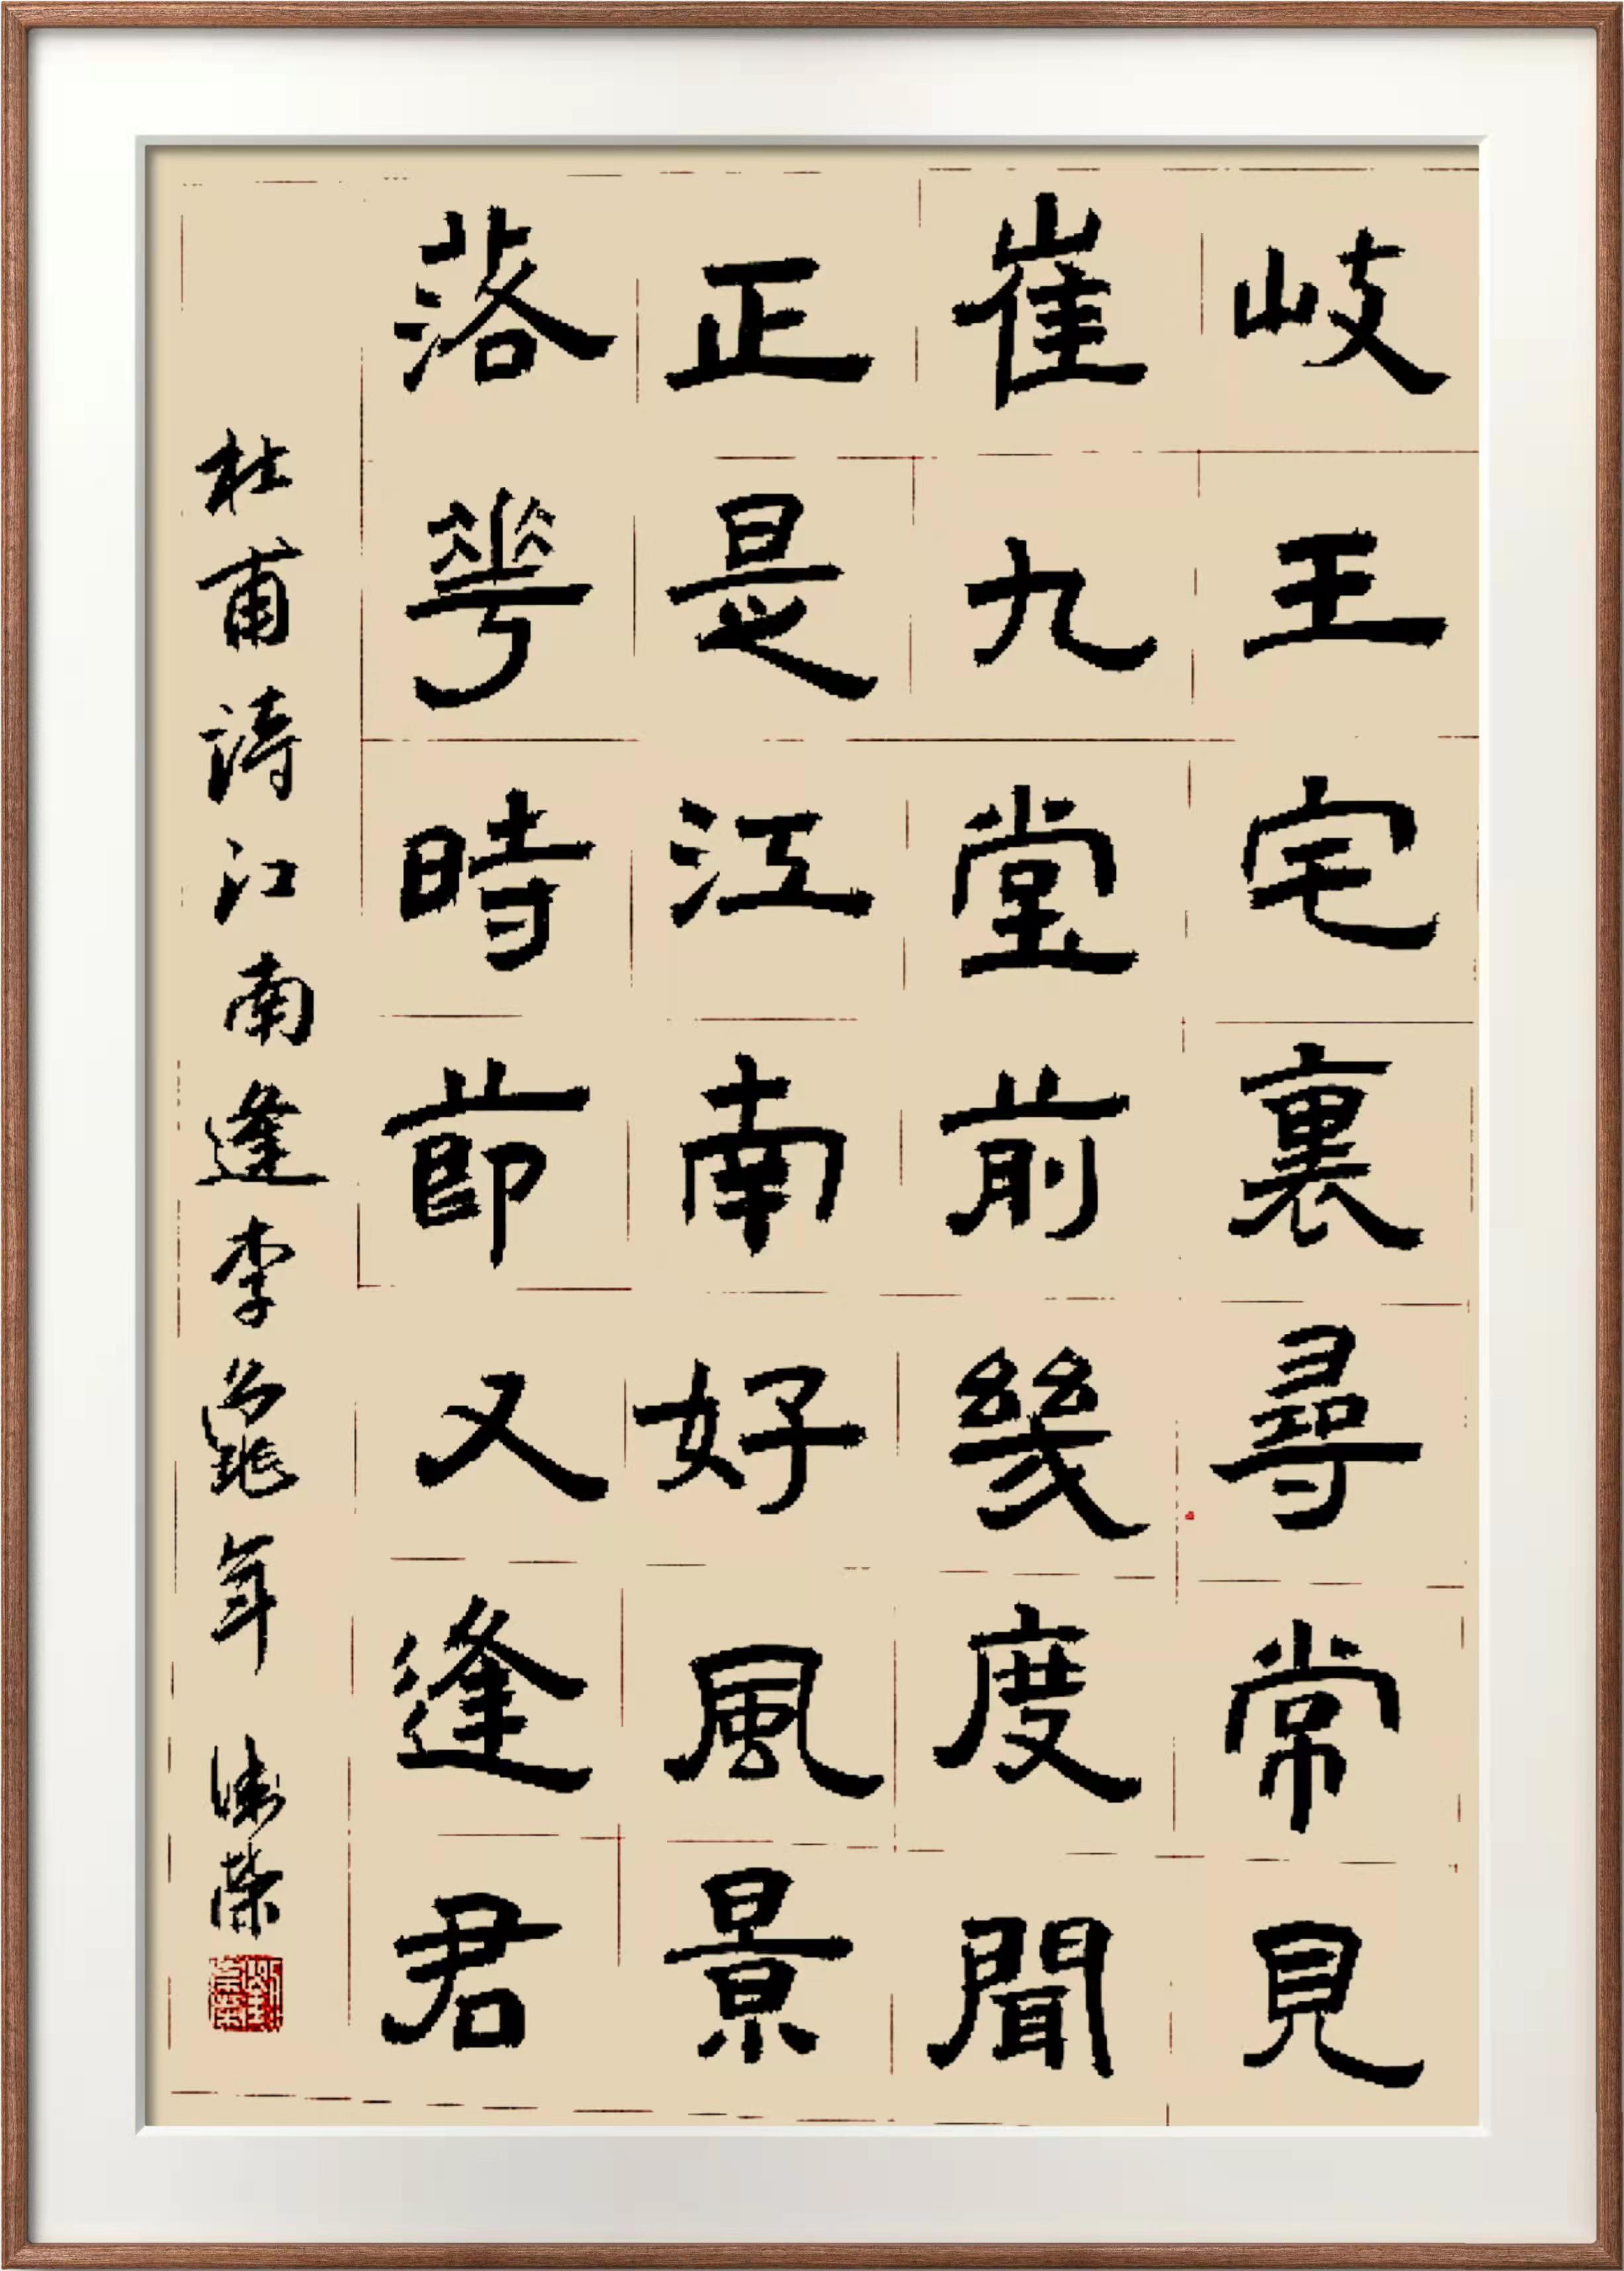 岐王宅裏尋常見
崔九堂前幾度聞
正是江南好風景
落花時節又逢君
杜甫詩江南逢李龜年